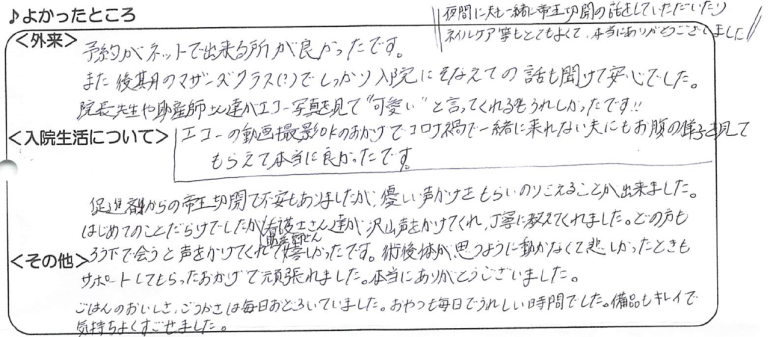 ♪よかったところ
夜間に夫も一緒に帝王切開の話をしていただいたり
ネイルケア等もとてもよくて、本当にありがとうございました
<外来>
予約がネットで出来る所が良かったです。
また後期のマザーズクラス(?)でしっかり入院にそなえての話も聞けて安心でした。
院長先生や助産師さん達がエコー写真を見て"可愛い"と言ってくれるもうれしかったです!!
エコーの動画撮影OKのおかげでコロナ禍で一緒に来れない夫にもお腹の様子を見て
もらえて本当に良かったです。
<入院生活について>
促進剤からの帝王切開で不安もありましたが、優しい声かけをもらいのりこえることが出来ました。
はじめてのことだらけでしたが看護士さん達が沢山声をかけてくれ、丁寧に教えてくれました。どの方も
助産師さん
ろう下で会うと声をかけてくれて嬉しかったです。術後体が思うように動かなくて悲しかったときも
<その他>
サポートしてもらったおかげで頑張れました。本当にありがとうございました。
ごはんのおいしさ、ごうかさは毎日おどろいていました。おやつも毎日でうれしい時間でした。備品もキレイで
気持ちよくすごせました。